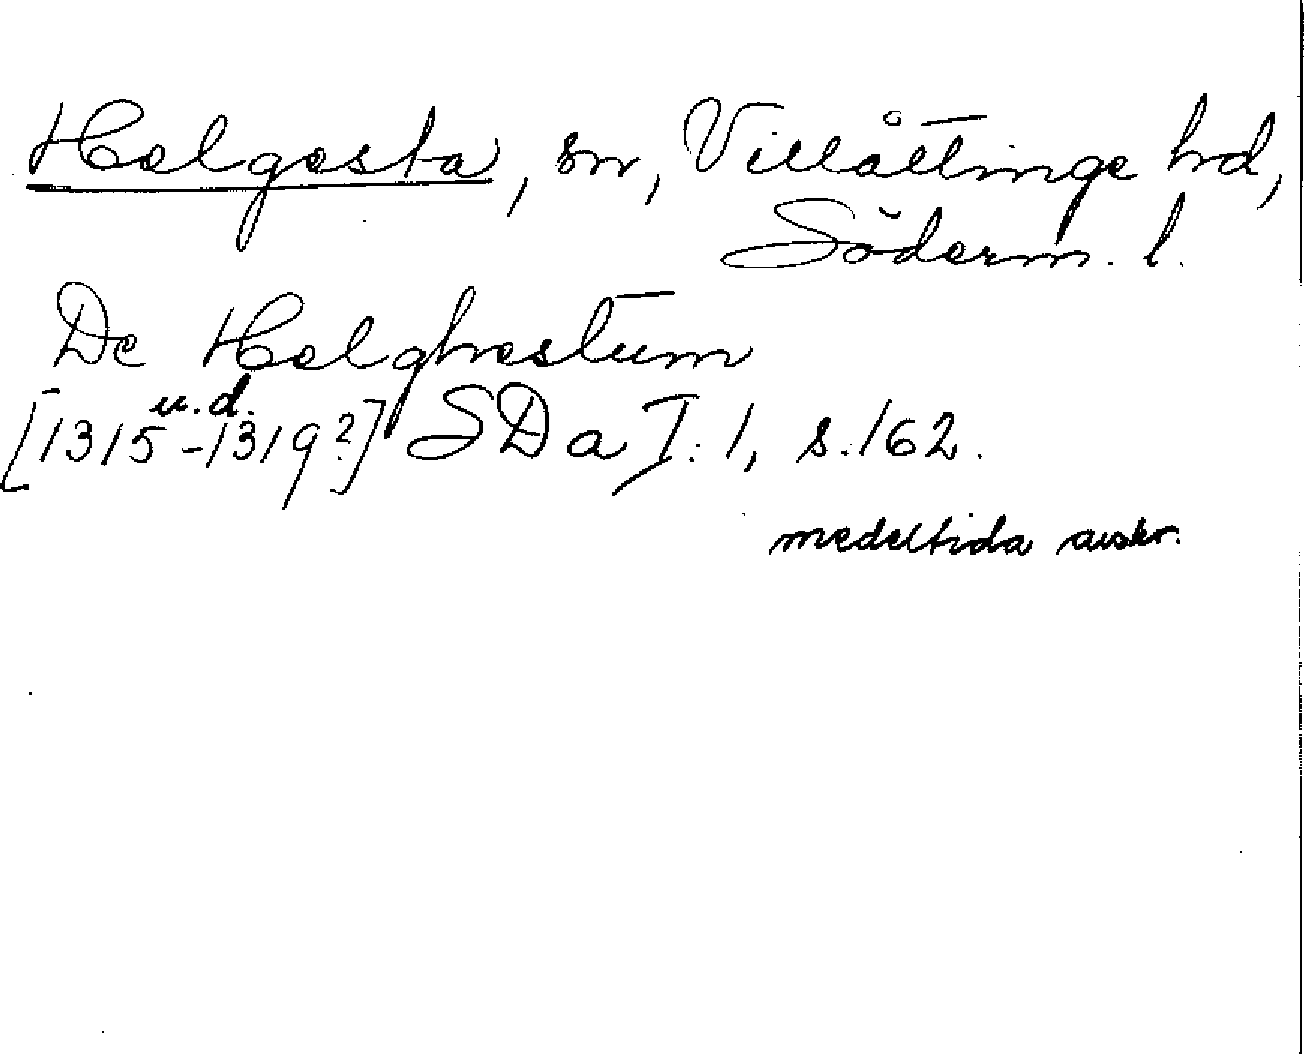 Helgesta, sn, Villåttinge hd,
Söderm. l.
De Helghestum
u.d.
[1315-1319?] SDa I:1, s.162.
medeltida avskr.